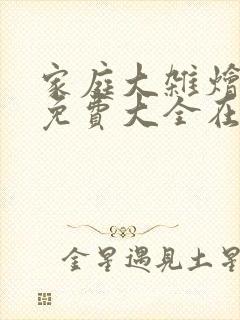 家庭大雜燴
免費大全在
金星遇見土星